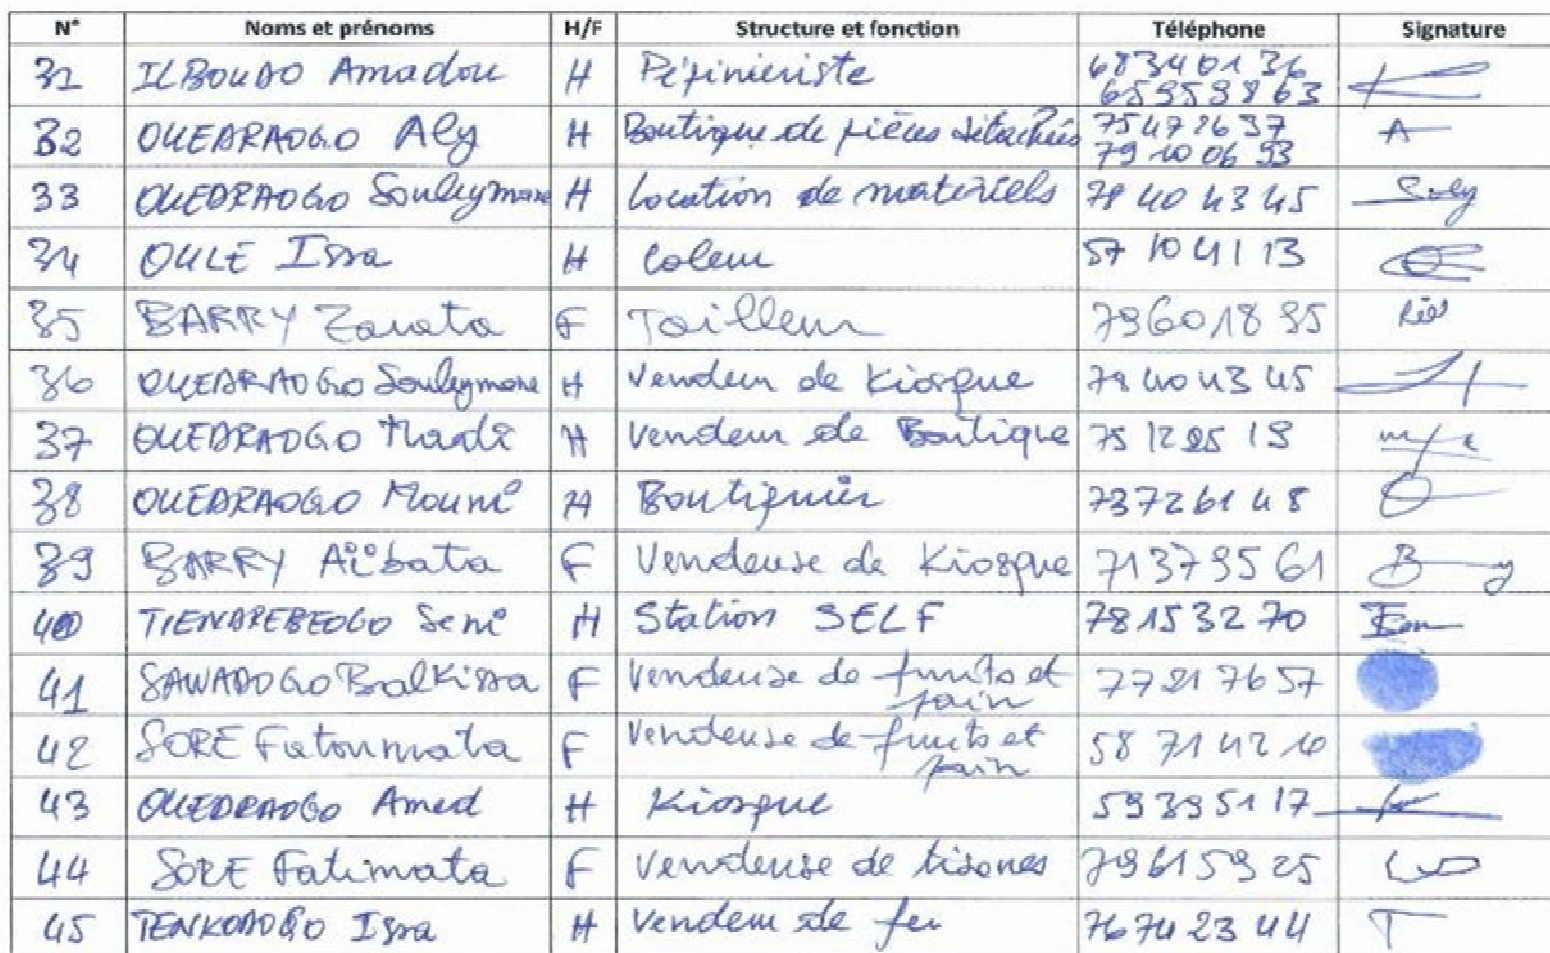 N° Noms et prénoms H/F Structure et fonction Téléphone Signature
31 ILBOUDO Amadou H Pépinieriste 68340136
65959863
32 OUEDRAOGO Aly H Boutique de pièces détachées 75478637
79 10 06 93
33 OUEDRAOGO Souleymane H Location de matériels 78 40 43 45 Suly
34 OULE Issa H Coleur 57 10 41 13
35 BARRY Zanata F Tailleur 79601895
36 OUEDRAOGO Souleymane H Vendeur de Kiosque 78 40 43 45
37 OUEDRAOGO Madi H Vendeur de Boutique 75 12 85 19
38 OUEDRAOGO Mouni H Boutiquier 73726148
39 BARRY Aïbata F Vendeuse de Kiosque 71379561
40 TIENDREBEOGO Seni H Station SELF 78153270
41 SAWADOGO Balkissa F Vendeuse de fruits et 77217657
pain
42 SORE Fatoumata F Vendeuse de fruits et 58 71 42 10
pain
43 OUEDRAOGO Amed H Kiosque 59395117
44 SORE Fatimata F Vendeuse de tisanes 79615925
45 TENKODOGO Issa H Vendeur de fer 76 74 23 44 T